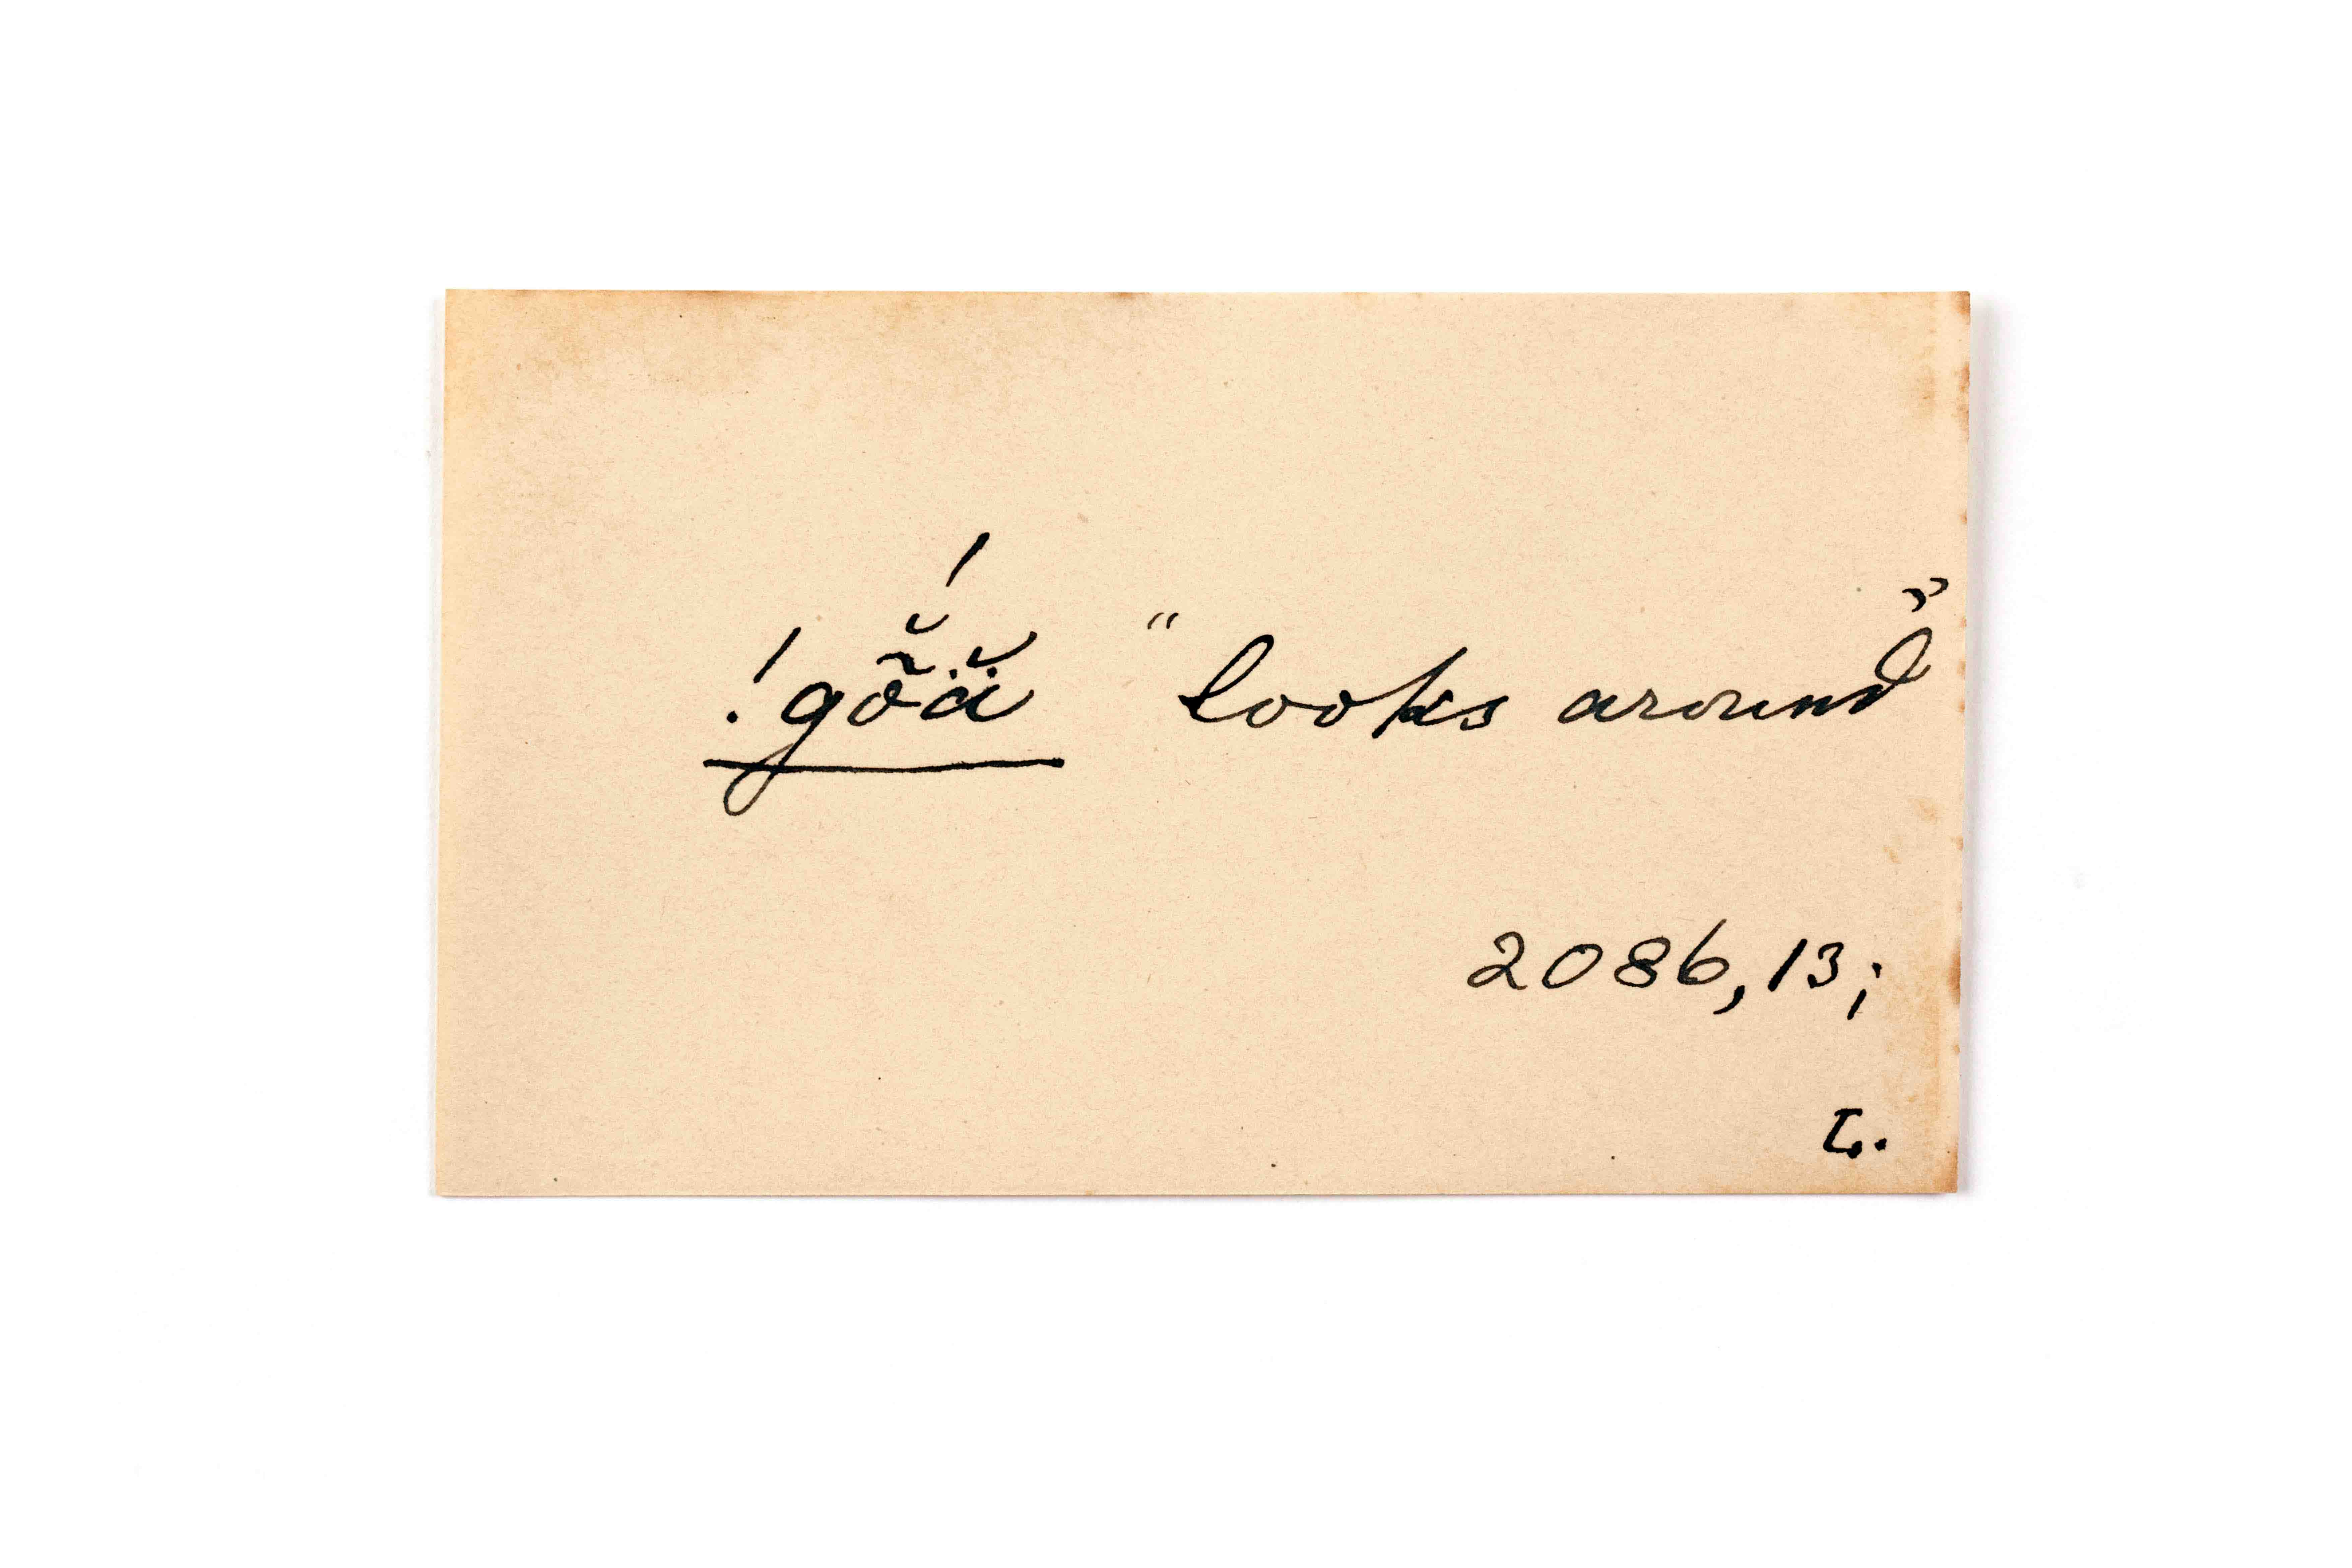 !gõ̆ä̆́ "looks around"
2086,13;
L.